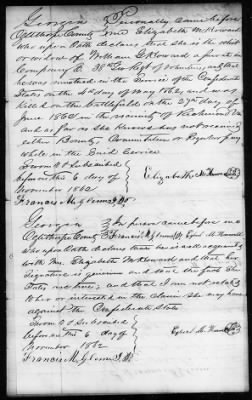 Georgia } Personally came before
Oglethorpe County } me Elizabeth McKownd
who upon Oath declares that she is the
or widow of William G McKownd a private
Company E 38th Ga Regt of Volunteers and that
he was mustered in the Service of the Confederate
States on the 4th day of May 1862 and was
Killed on the battlefield on the 27th day of
June 1862 in the vicinity of Richmond Va
and as far as she Knows has not received
either Bounty, Commutation or Regular pay
while in the Said Service
Sworn & Subscribed
before me this 6 day of
November 1862
Elizabeth
Francis M. Glenn J.P.
Georgia } In person came before me
Oglethorpe County } Francis M Glenn J.P.
who upon Oath declares that he is well acquainted
with Mrs. Elizabeth McKownd and that her
Signature is genuine and that the facts she
States and that I am not
to her or interested in the claim she may have
against the Confederate States
Sworn & Subscribed
before me this 6 day of
November 1862
Francis M. Glenn J.P.